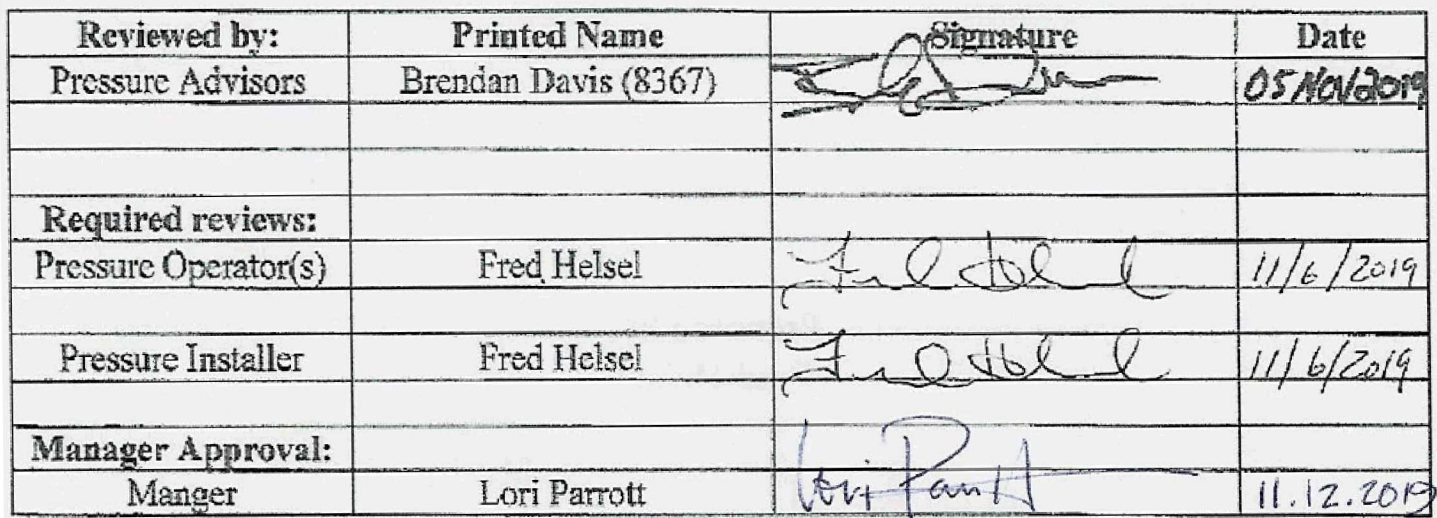 Reviewed by: Printed Name Signature Date
Pressure Advisors Brendan Davis (8367) 05Nov2019
Required reviews:
Pressure Operator(s) Fred Helsel Fred Helsel 11/6/2019
Pressure Installer Fred Helsel Fred Helsel 11/6/2019
Manager Approval:
Manger Lori Parrott Lori Parrott 11.12.2019